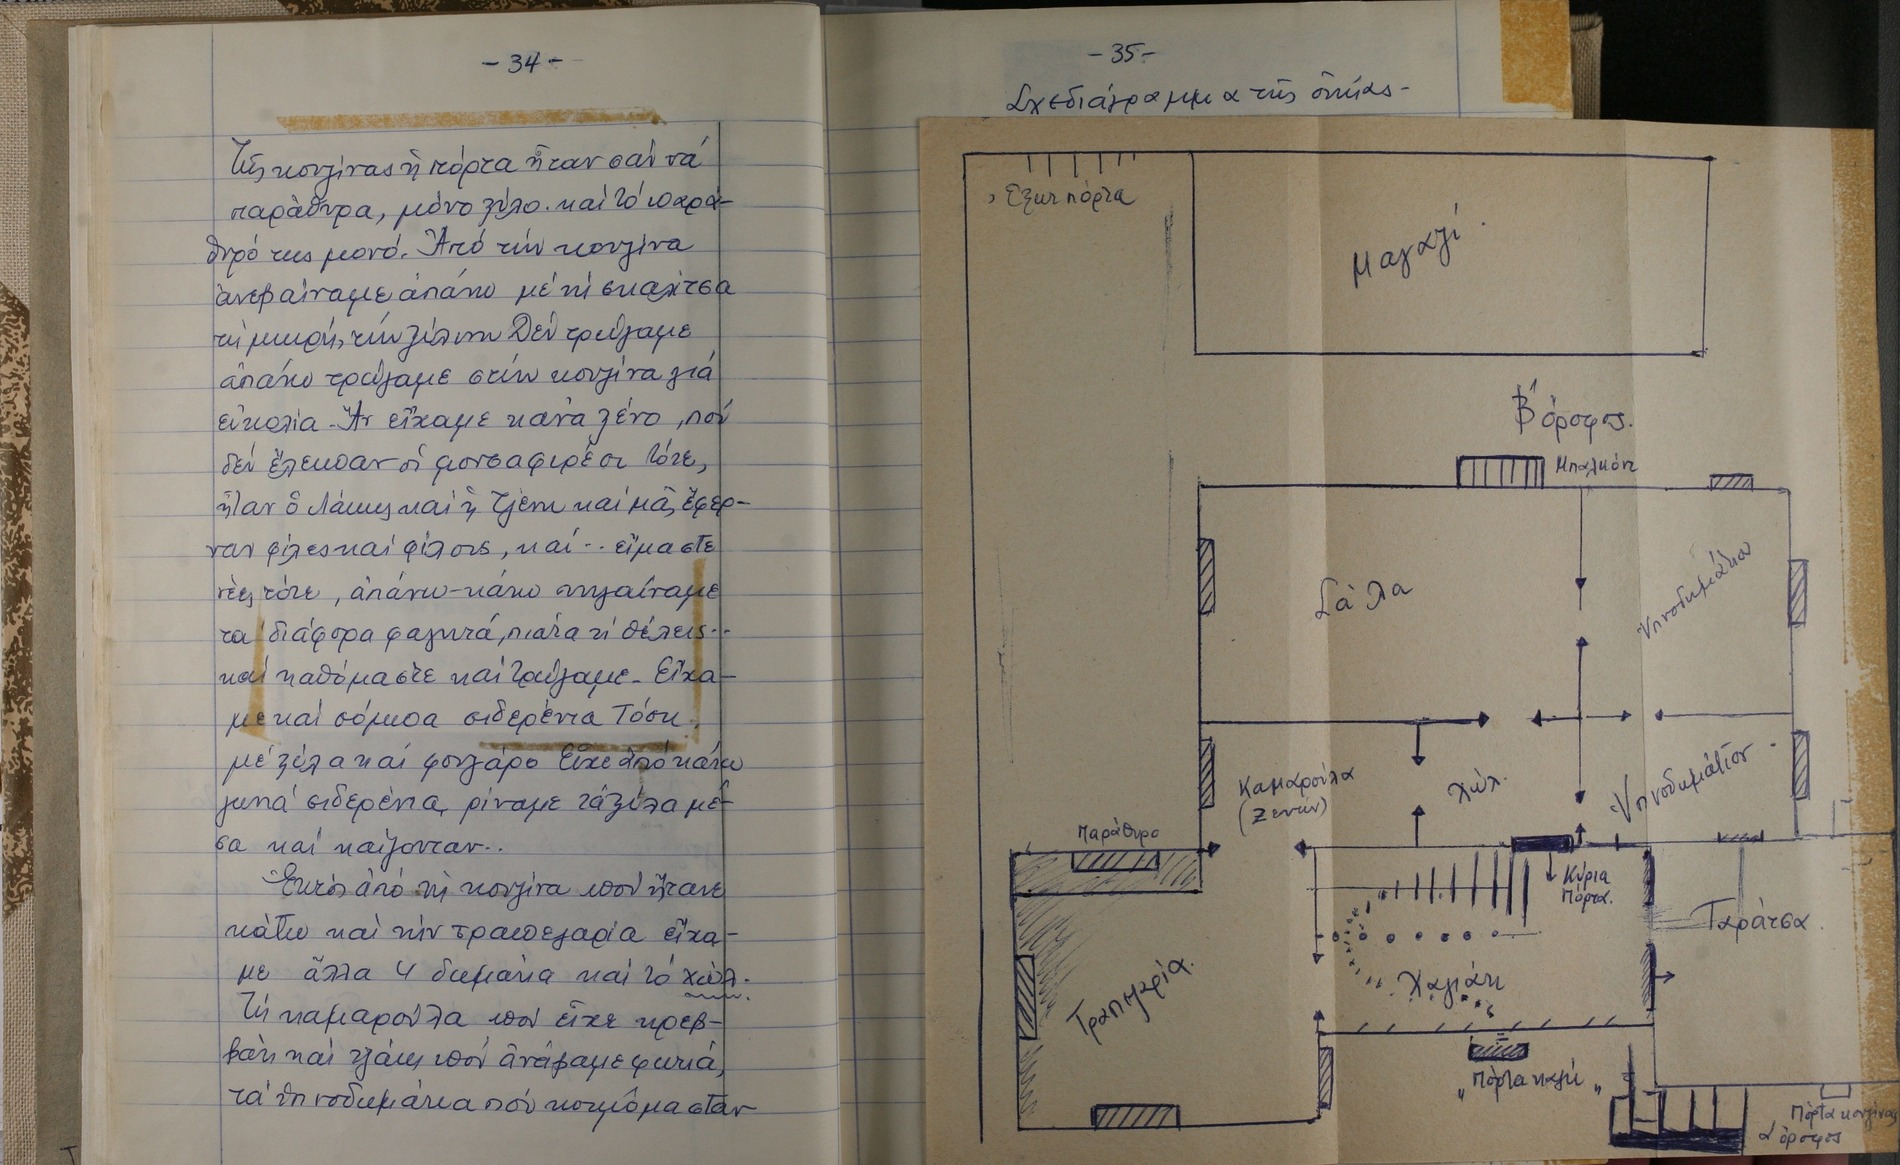 - 34 -
Τῆς κουζίνας ἡ πόρτα ἦταν σάν τά
παράθυρα, μόνο ξύλο. καί τό παρά-
θυρό της μονό. Ἀπό τήν κουζίνα
ἀνεβαίναμε ἀπάνω μέ τή σκαλίτσα
τή μικρή, τήν ξύλινη Δέν τρώγαμε
ἀπάνω τρώγαμε στήν κουζίνα γιά
εὐκολία - Ἄν εἴχαμε κανά ξένο, πού
δέν ἔλειπαν οἱ μουσαφιρέοι τότε,
ἦταν ὁ Λάκης καί ἡ Τζένη καί μᾶς ἔφερ-
ναν φίλες καί φίλους, καί .. εἴμαστε
νέες τότε, ἀπάνω-κάτω πηγαίναμε
τά διάφορα φαγητά, πιάτα τί θέλεις..
καί καθόμαστε καί τρώγαμε - Εἴχα-
με καί σόμπα σιδερένια τόση.
μέ ξύλα καί φουγάρο Εἶχε ἀπό κάτω
σιδερένια, ρίναμε τά ξύλα μέ-
σα καί καίγονταν..
Ἐκτός ἀπό τή κουζίνα πού ἤτανε
κάτω καί τήν τραπεζαρία εἴχα-
με ἄλλα 4 δωμάτια καί τό χώλ.
Τή καμαρούλα πού εἶχε κρεβ-
βάτι καί τζάκι πού ἀνάβαμε φωτιά,
τά ὑπνοδωμάτια πού κοιμόμασταν
- 35 -
Σχεδιάγραμμα τῆς οἰκίας -
Ἔξω πόρτα
Μαγαζί.
Β΄ όροφος.
Μπαλκόνι
Σάλα
Ὑπνοδωμάτιο
Καμαρούλα
(Ξενών)
Χώλ.
Ὑπνοδωμάτιον -
Παράθυρο
Κύρια
Πόρτα.
Ταράτσα.
Τραπεζαρία.
Χαγιάτι
"Πόρτα καγή"
Πόρτα κουζίνας
Α΄ όροφος